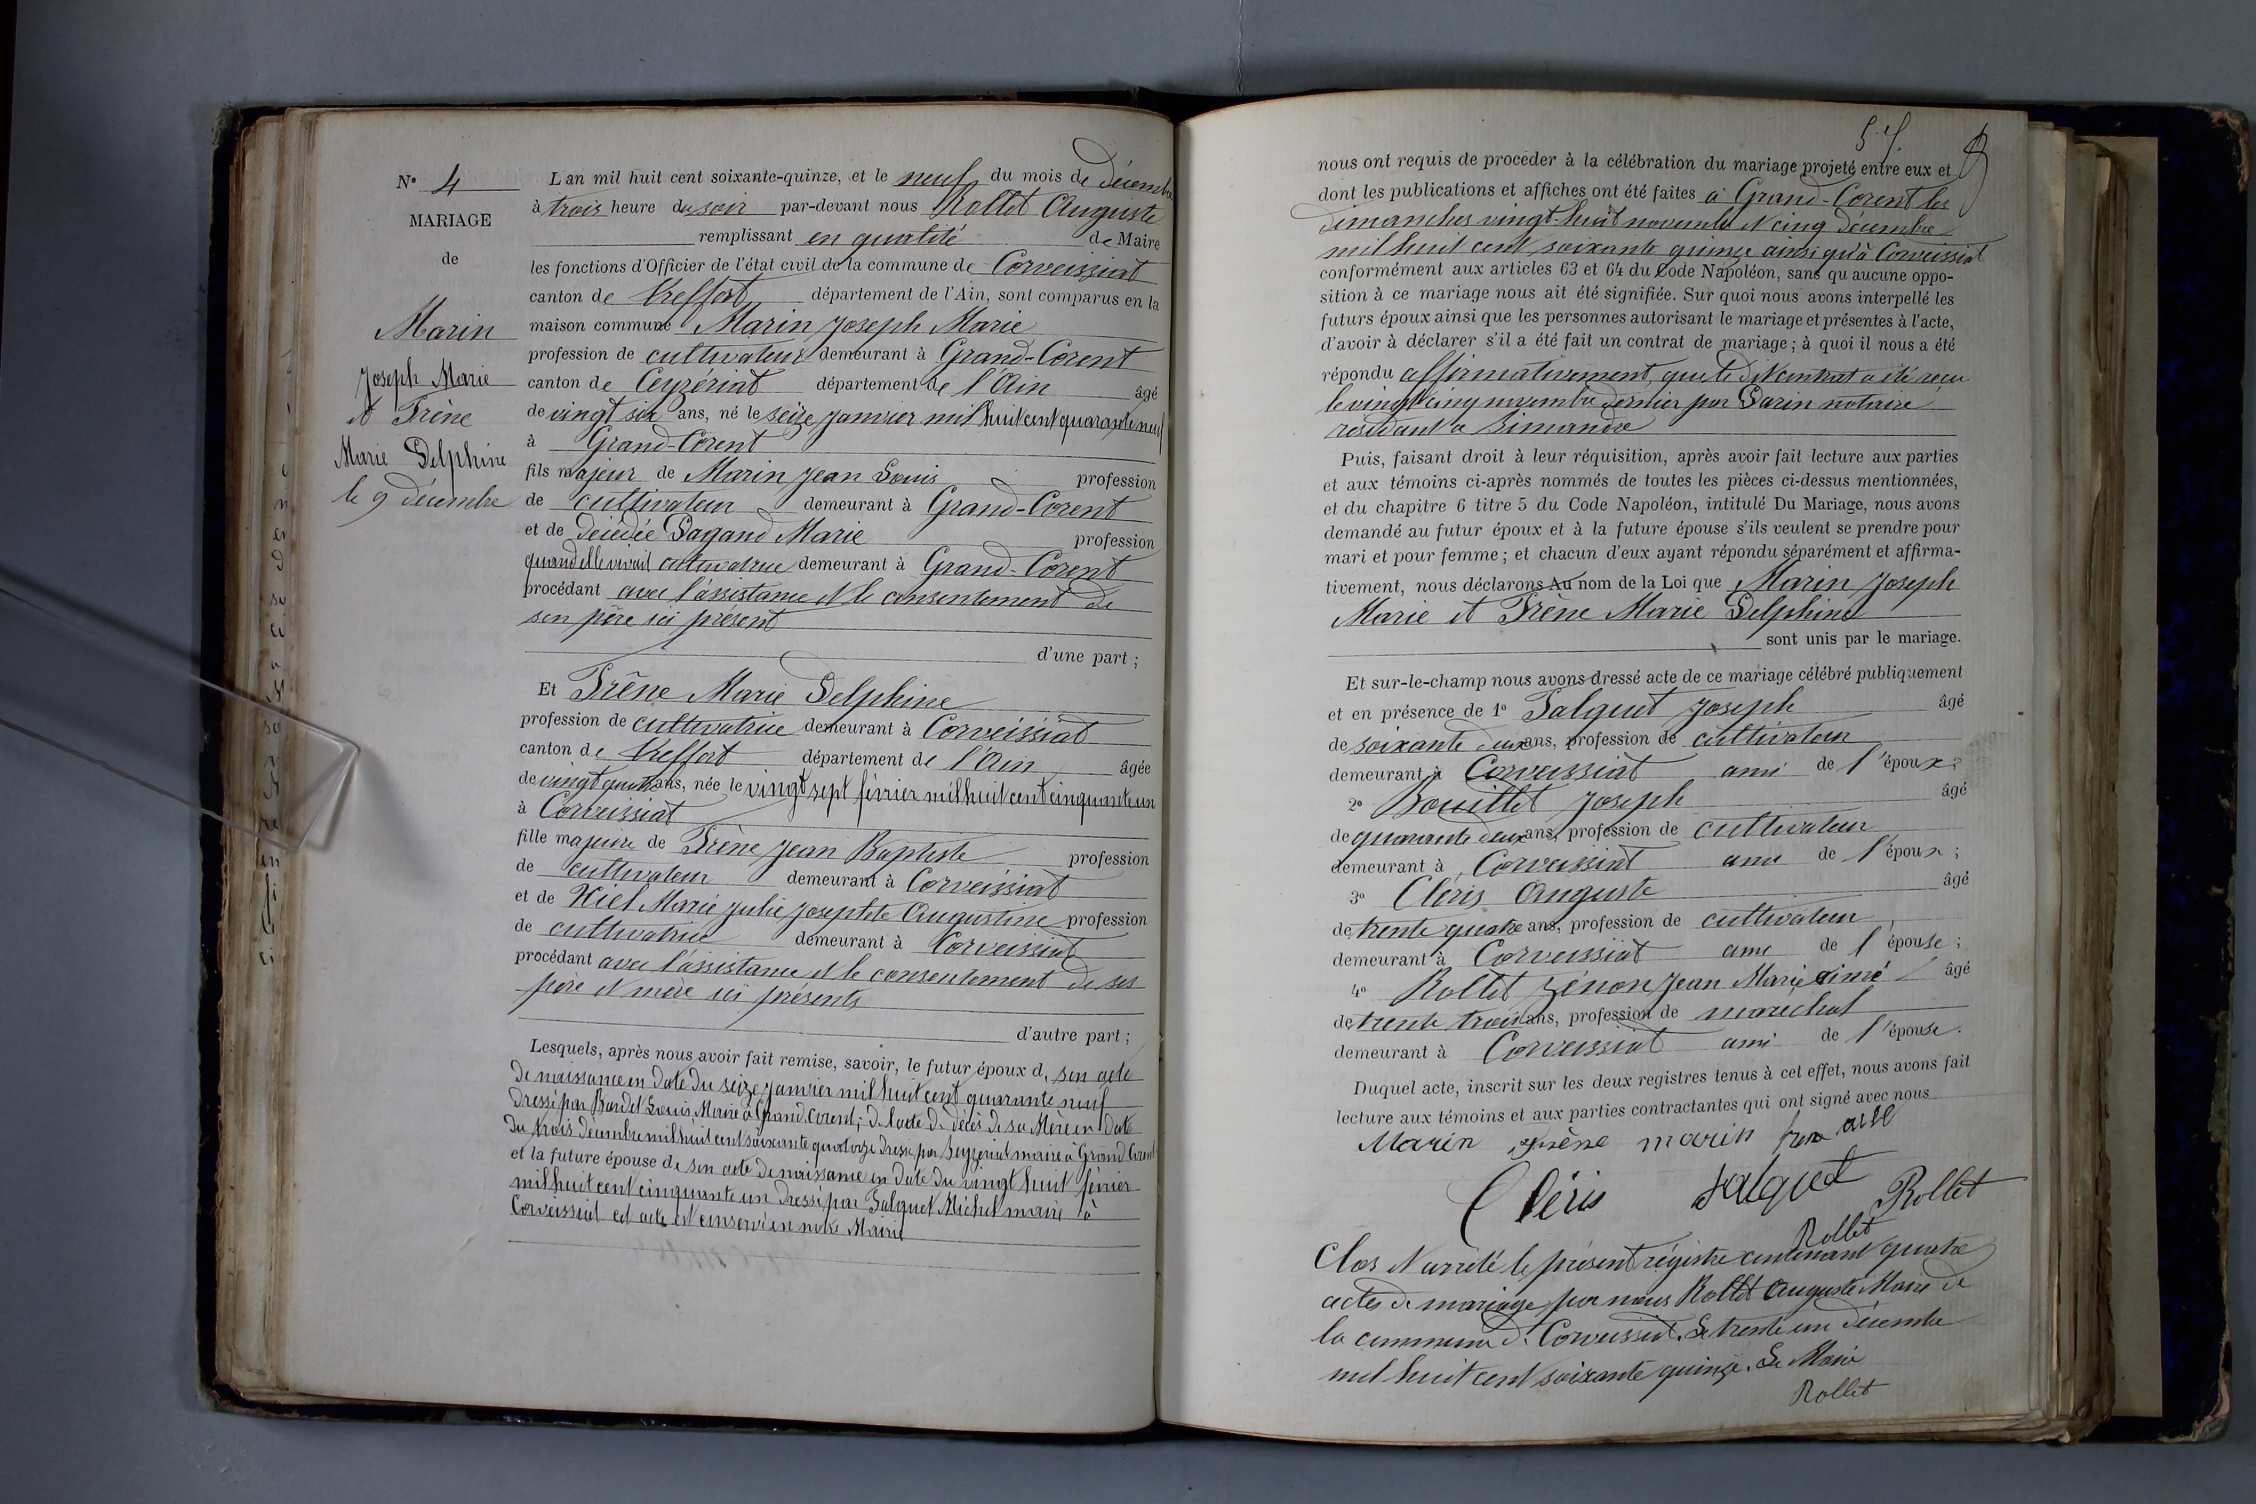 N° 4
MARIAGE
de
Marin
Joseph Marie
et Frène
Marie Delphine
le 9 décembre
L'an mil huit cent soixante-quinze, et le neuf du mois de décembre
à trois heure du soir par-devant nous Rollet Auguste
remplissant en qualité de Maire
les fonctions d'Officier de l'état civil de la commune de Corveissiat
canton de Treffort département de l'Ain, sont comparus en la
maison commune Marin Joseph Marie
profession de cultivateur demeurant à Grand-Corent
canton de Ceyzériat département de l'Ain âgé
de vingt six ans, né le seize janvier mil huit cent quarante neuf
à Grand-Corent
fils majeur de Marin Jean Louis profession
de cultivateur demeurant à Grand-Corent
et de décédée Pagand Marie profession
quand elle vivait cultivatrice demeurant à Grand-Corent
procédant avec l'assistance et le consentement de
son père ici présent
d'une part ;
Et Frène Marie Delphine
profession de cultivatrice demeurant à Corveissiat
canton de Treffort département de l'Ain âgée
de vingt quatre ans, née le vingt sept février mil huit cent cinquante un
à Corveissiat
fille majeure de Frène Jean Baptiste profession
de cultivateur demeurant à Corveissiat
et de Marie Julie Josephte Augustine profession
de cultivatrice demeurant à Corveissiat
procédant avec l'assistance et le consentement de ses
père et mère ici présents
d'autre part ;
Lesquels, après nous avoir fait remise, savoir, le futur époux d, son acte
de naissance en date du seize janvier mil huit cent quarante neuf
dressé par Bardet Louis Maire à Grand Corent ; de l'acte de décès de sa Mère en date
du trois décembre mil huit cent soixante quatorze dressé par maire à Grand Corent
et la future épouse de son acte de naissance en date du vingt huit février
mil huit cent cinquante un dressé par Falquet Michel maire à
Corveissiat cet acte est conservé en notre Mairie
nous ont requis de procéder à la célébration du mariage projeté entre eux et
dont les publications et affiches ont été faites à Grand-Corent les
dimanches vingt-huit novembre et cinq décembre
mil huit cent soixante quinze ainsi qu'à Corveissiat
conformément aux articles 63 et 64 du Code Napoléon, sans qu'aucune oppo-
sition à ce mariage nous ait été signifiée. Sur quoi nous avons interpellé les
futurs époux ainsi que les personnes autorisant le mariage et présentes à l'acte,
d'avoir à déclarer s'il a été fait un contrat de mariage ; à quoi il nous a été
répondu affirmativement, que le dit contrat a été reçu
le vingt cinq novembre dernier par notaire
résidant à Simandre
Puis, faisant droit à leur réquisition, après avoir fait lecture aux parties
et aux témoins ci-après nommés de toutes les pièces ci-dessus mentionnées,
et du chapitre 6 titre 5 du Code Napoléon, intitulé Du Mariage, nous avons
demandé au futur époux et à la future épouse s'ils veulent se prendre pour
mari et pour femme ; et chacun d'eux ayant répondu séparément et affirma-
tivement, nous déclarons Au nom de la Loi que Marin Joseph
Marie et Frène Marie Delphine
sont unis par le mariage.
Et sur-le-champ nous avons dressé acte de ce mariage célébré publiquement
et en présence de 1° Falquet Joseph âgé
de soixante deux ans, profession de cultivateur
demeurant à Corveissiat ami de l'époux ;
2° Bouillet Joseph âgé
de quarante deux ans, profession de cultivateur
demeurant à Corveissiat ami de l'époux ;
3° Cléris Auguste âgé
de trente quatre ans, profession de cultivateur
demeurant à Corveissiat ami de l'épouse ;
4° Rollet Zénon Jean Marie aimé âgé
de trente trois ans, profession de maréchal
demeurant à Corveissiat ami de l'épouse.
Duquel acte, inscrit sur les deux registres tenus à cet effet, nous avons fait
lecture aux témoins et aux parties contractantes qui ont signé avec nous
Marin Frène marin
Cléris Falquet Rollet
Rollet
Clos et arrêté le présent régistre contenant quatre
actes de mariage par nous Rollet Auguste Maire de
la commune de Corveissiat. Le trente un décembre
mil huit cent soixante quinze. Le Maire
Rollet